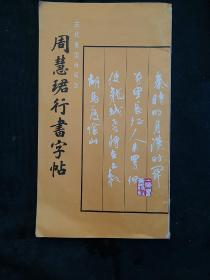 周慧珺行書字帖
秦時明月漢時関
万里長征人未還但
使龍城飛將在不教
胡馬度陰山